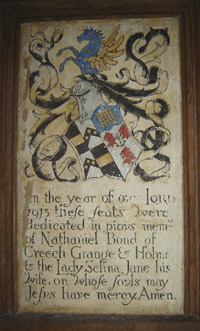 In the year of our LORD
1915 these seats were
dedicated in pious mem:
of Nathaniel Bond of
Creech Grange & Holme
& the Lady Selina Jane his
wife, on whose souls may
Jesus have mercy. Amen.